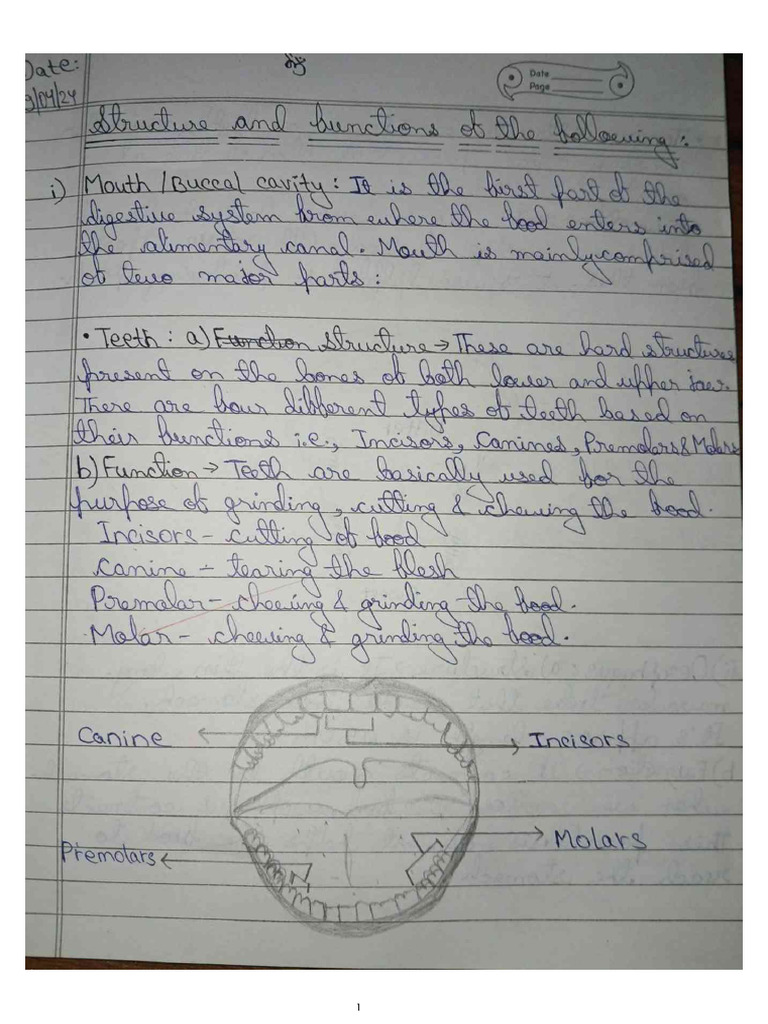 Date:
Date
Page
9/04/24
Structure and functions of the following:
i) Mouth/Buccal cavity: It is the first part of the
digestive system from where the food enters into
the alimentary canal. Mouth is mainly comprised
of two major parts:
• Teeth: a) Function Structure → These are hard structures
present on the bones of both lower and upper jaw.
There are four different types of teeth based on
their functions i.e., Incisors, Canines, Premolars & Molars
b) Function → Teeth are basically used for the
purpose of grinding, cutting & chewing the food.
Incisors - cutting of food
Canine - tearing the flesh
Premolar - chewing & grinding the food.
Molar - chewing & grinding the food.
Canine
Incisors
Molars
Premolars
1